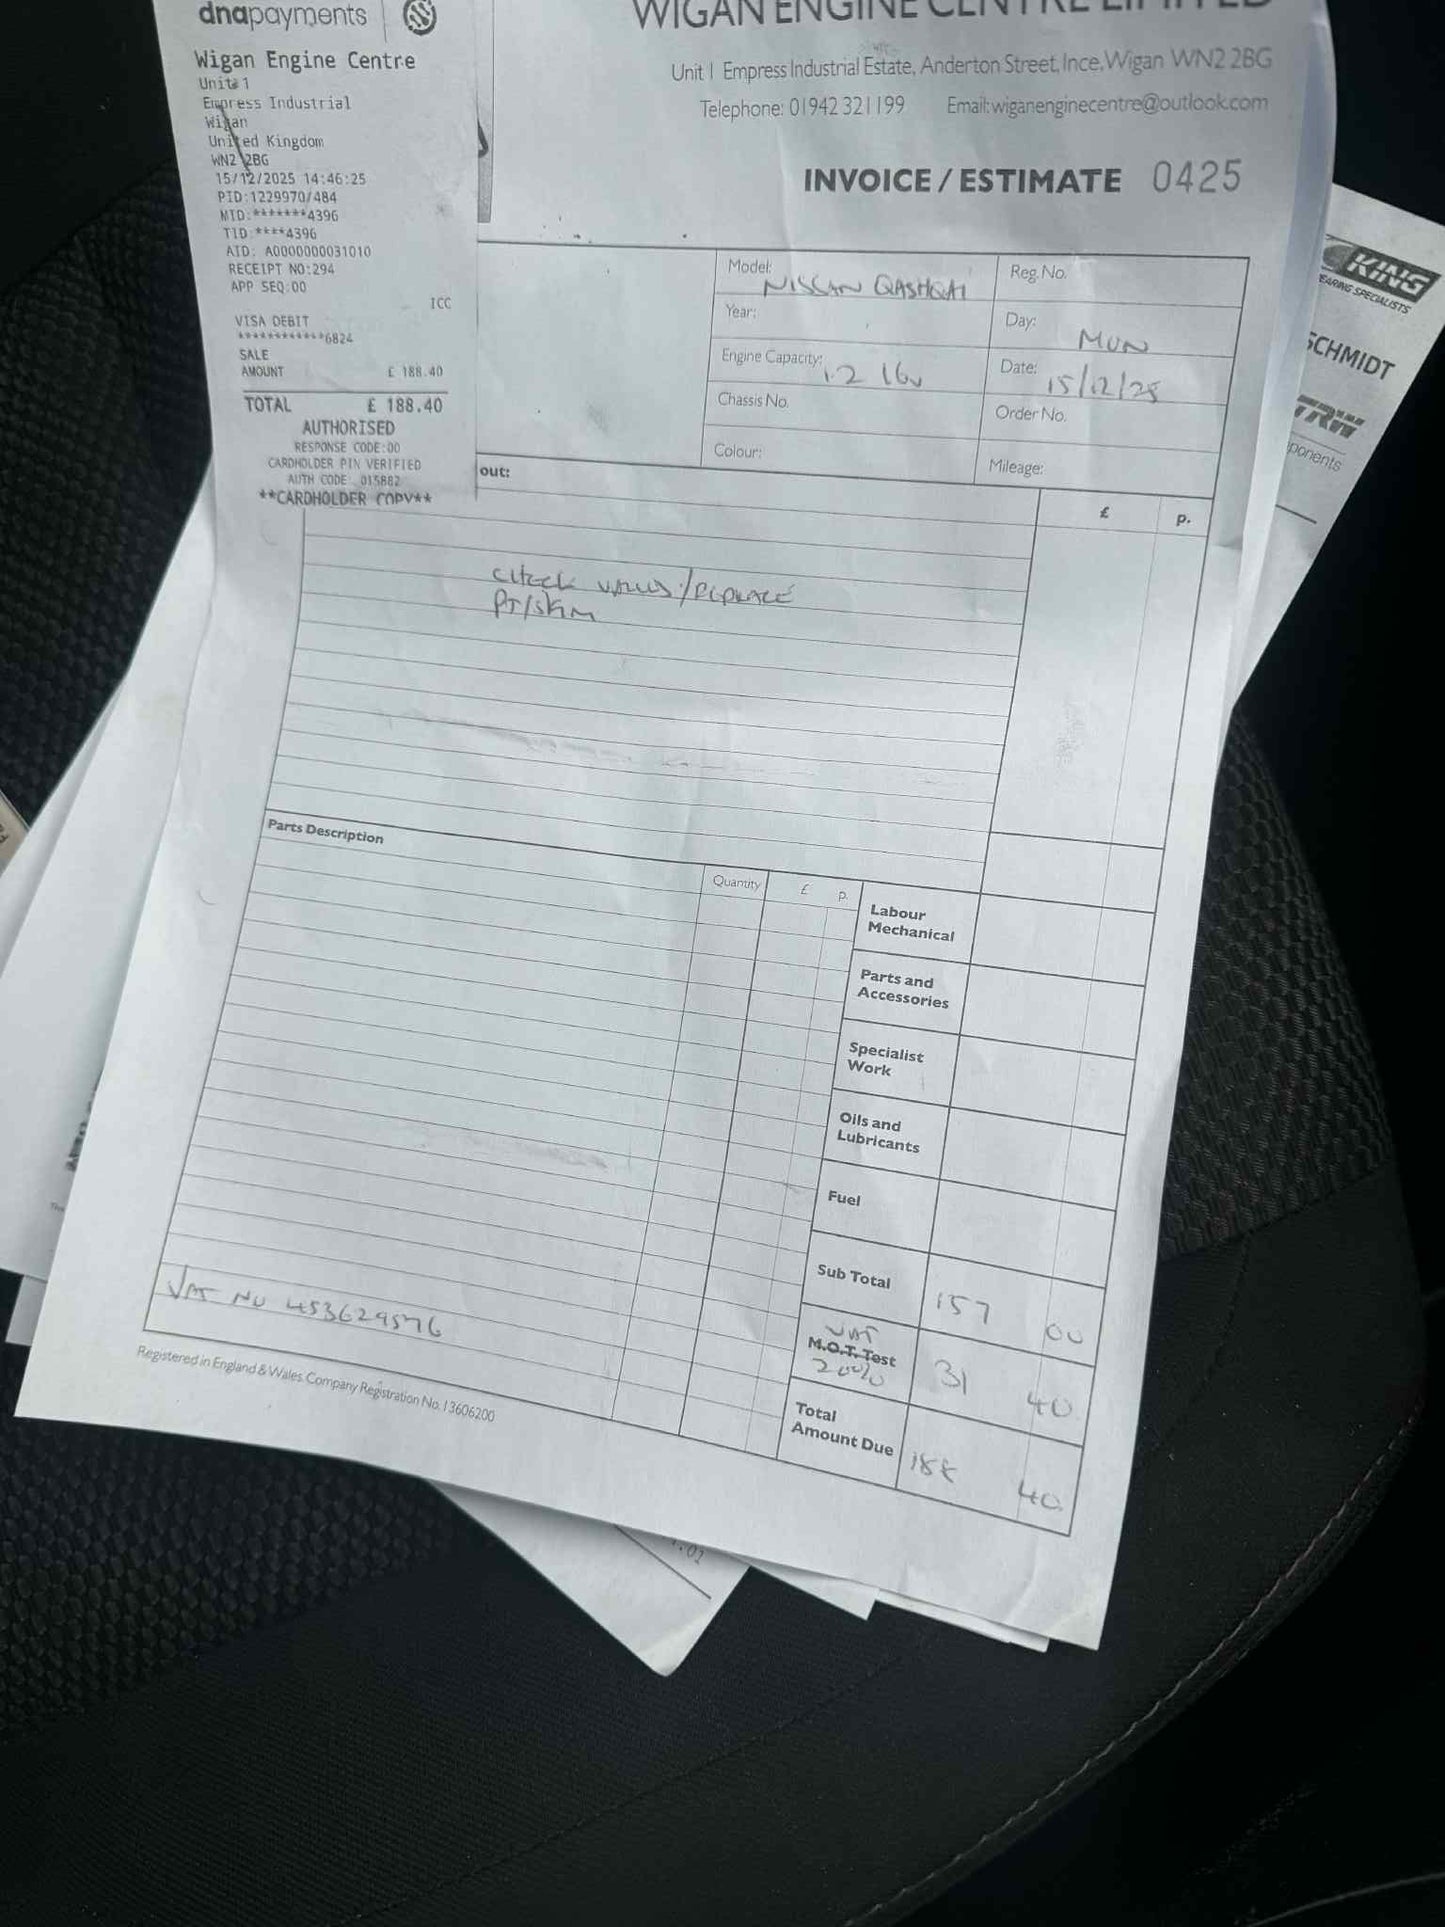 dnapayments
Wigan Engine Centre
Unit 1
Empress Industrial
Wigan
United Kingdom
WN2 2BG
15/12/2025 14:46:25
PID:1229970/484
MID:*******4396
TID:****4396
AID: A0000000031010
RECEIPT NO:294
APP SEQ:00
ICC
VISA DEBIT
************6824
SALE
AMOUNT £ 188.40
TOTAL £ 188.40
AUTHORISED
RESPONSE CODE:00
CARDHOLDER PIN VERIFIED
AUTH CODE: 015882
**CARDHOLDER COPY**
WIGAN ENGINE CENTRE LIMITED
Unit 1 Empress Industrial Estate, Anderton Street, Ince, Wigan WN2 2BG
Telephone: 01942 321199 Email: wiganenginecentre@outlook.com
INVOICE / ESTIMATE 0425
Model: NISSAN QASHQAI
Reg. No.
Year:
Day: MON
Engine Capacity: 1.2 16v
Date: 15/12/25
Chassis No.
Order No.
Colour:
Mileage:
out:
£ p.
CHECK VALVES/REPLACE
PT/SKIM
Parts Description
Quantity £ p.
Labour
Mechanical
Parts and
Accessories
Specialist
Work
Oils and
Lubricants
Fuel
Sub Total 157 00
VAT
M.O.T. Test 31 40
20%
Total
Amount Due 188 40
VAT NO 453629576
Registered in England & Wales. Company Registration No. 13606200
KING
BEARING SPECIALISTS
SCHMIDT
TRW
ponents